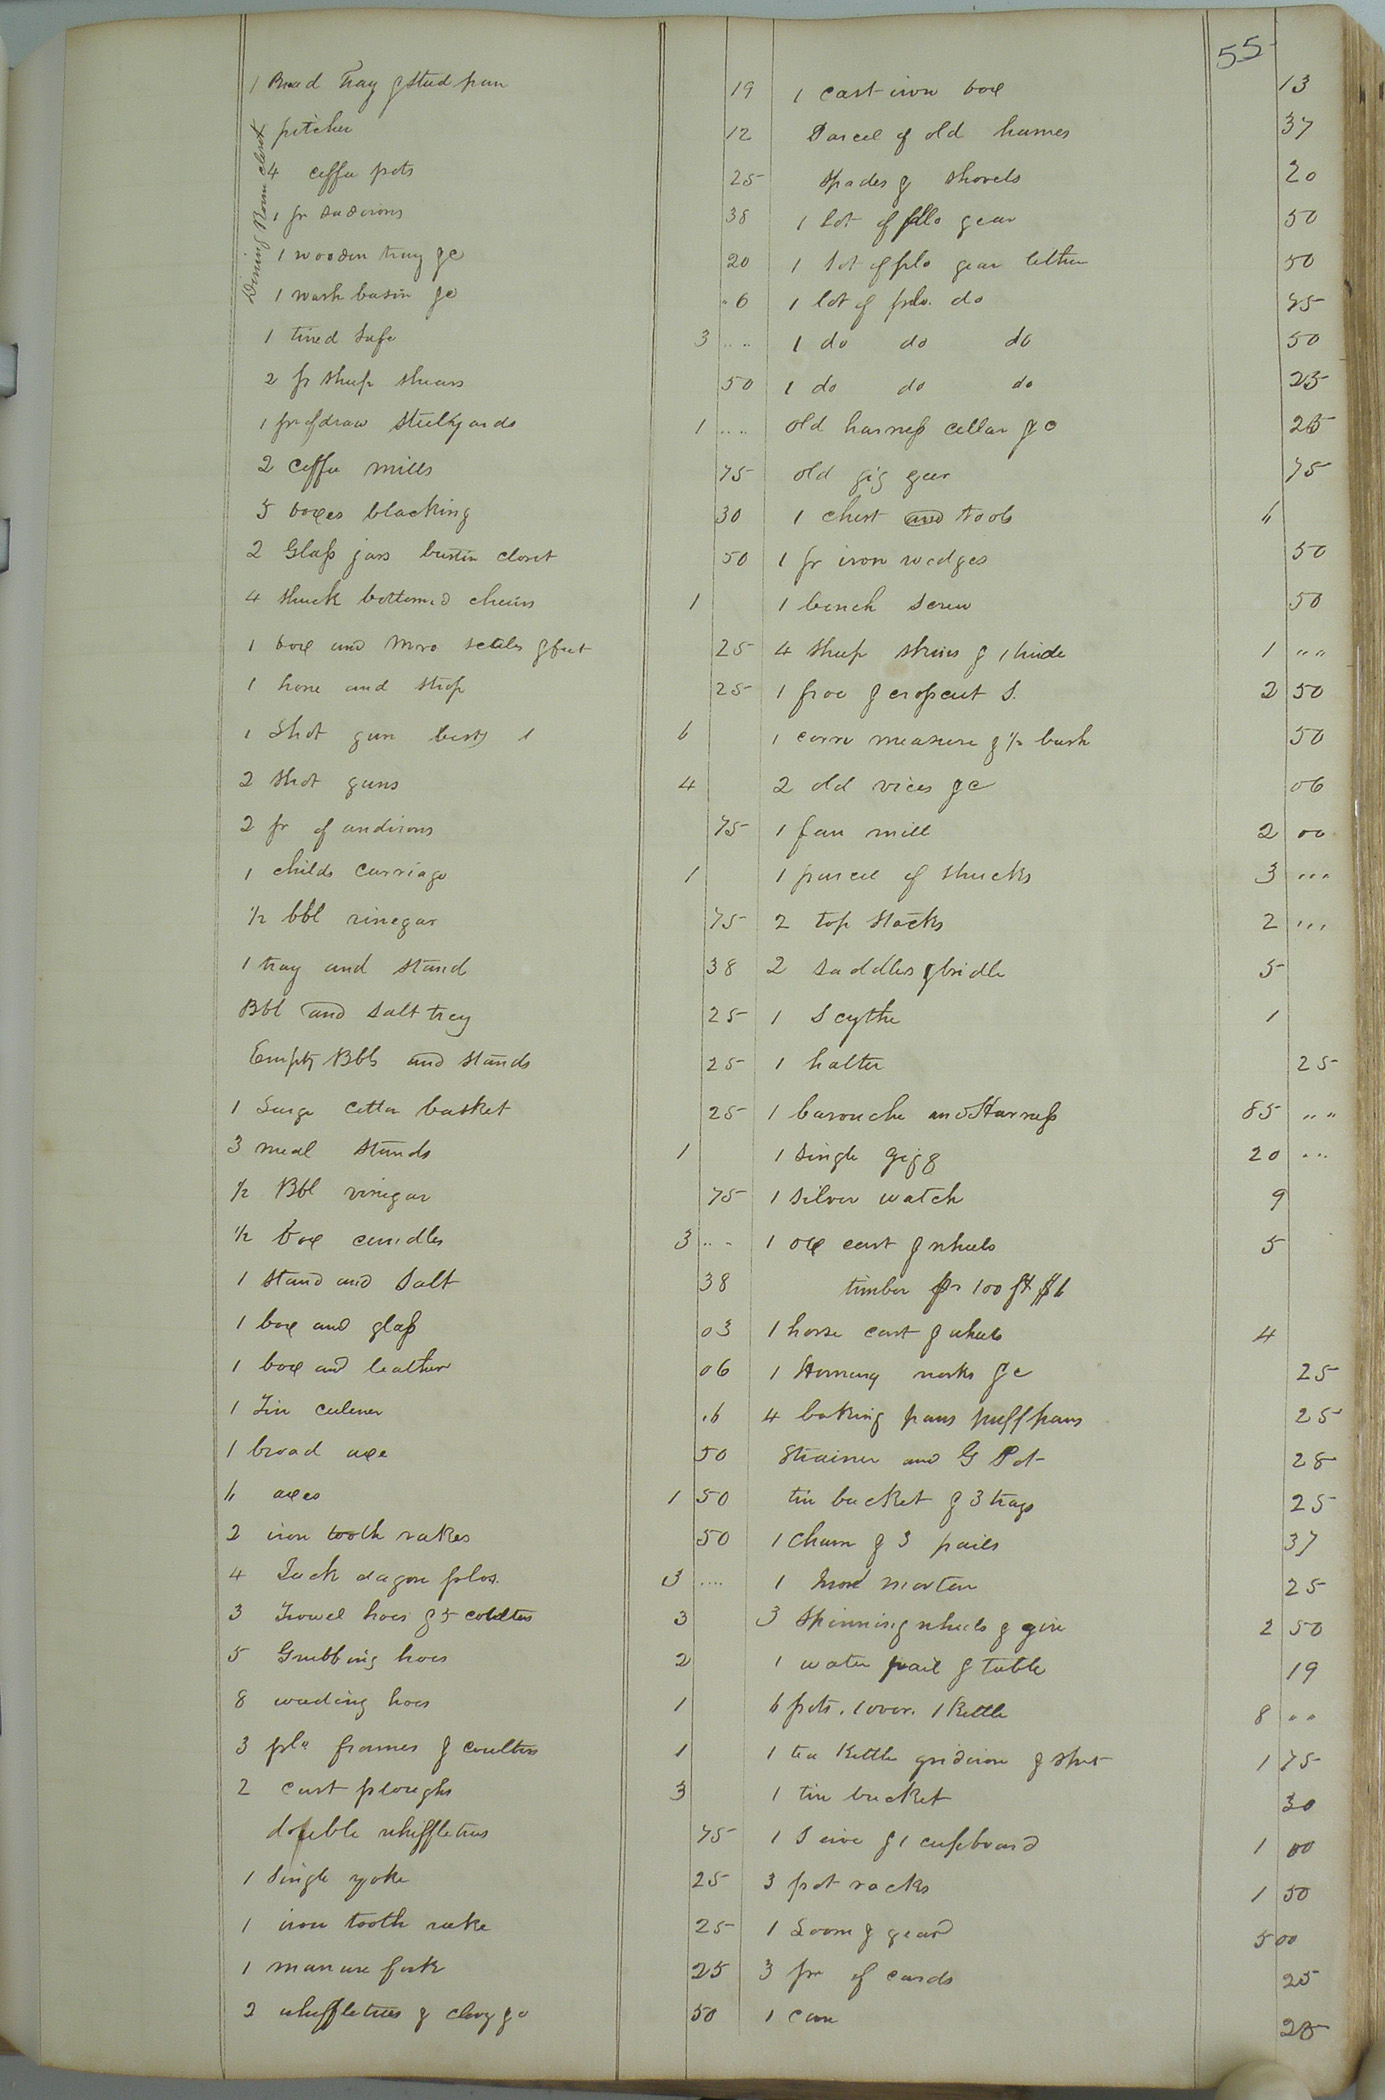 55
Dining Room closet
1 Bread Tray & Stud pan 19
pitcher 12
4 coffee pots 25
1 pr sadirons 38
1 wooden tray &c 20
1 wash basin &c .6
1 tined Safe 3 ....
2 pr Sheep Shears 50
1 pr of draw Steelyards 1 ....
2 Coffee mills 75
5 boxes blacking 30
2 Glass jars closet 50
4 Shuck bottomed chairs 1
1 box and scales & 25
1 hone and Strop 25
1 Shot gun 1 6
2 Shot guns 4
2 pr of andirons 75
1 childs Carriage 1
1/2 bbl vinegar 75
1 tray and Stand 38
Bbl and Salt tray 25
Empty Bbls and Stands 25
1 Large Cotton basket 25
3 meal Stands 1
1/2 Bbl vinegar 75
1/2 box candles 3 ....
1 Stand and Salt 38
1 box and glass 03
1 box and leather 06
1 Tin .6
1 broad axe 50
6 axes 1 50
2 iron tooth rakes 50
4 plos. 3 ....
3 Trowel hoes & 5 coulters 3
5 Grubbing hoes 2
8 weeding hoes 1
3 plo frames & coulters 1
2 Cast ploughs 3
double whiffletrees 75
1 Single yoke 25
1 iron tooth rake 25
1 manure fork 25
2 whiffletrees & clevy &c 50
1 cast iron box 13
Parcel of old hames 37
Spades & Shovels 20
1 Lot of plo gear 50
1 Lot of plo gear 50
1 lot of plo. do 75
1 do do do 50
1 do do do 25
old harness collar &c 25
old gig gear 75
1 chest and tools 6
1 pr iron wedges 50
1 bench Screw 50
4 Sheep Skins & 1 hide 1 ""
1 froe & cropcut S. 2 50
1 corn measure & 1/2 bush 50
2 old vices &c 06
1 fan mill 2 00
1 parcel of Shucks 3 ...
2 top Stacks 2 ...
2 Saddles & bridle 5
1 Scythe 1
1 halter 25
1 barouche and Harness 85 ""
1 Single Gigg 20 ...
1 Silver watch 9
1 ox cart & wheels 5
timber pr 100 ft $6
1 horse cart & wheels 4
1 &c 25
4 baking pans puff pans 25
Strainer and G Pot 28
tin bucket & 3 trays 25
1 Churn & 3 pails 37
1 mortar 25
3 Spinning wheels & gin 2 50
1 water pail & table 19
6 pots. 1 oven. 1 Kettle 8 ""
1 tea Kettle gridiron & 1 75
1 tin bucket 30
1 Sieve & 1 cupboard 1 00
3 pot racks 1 50
1 Loom & gear 5 00
3 pr of cards 25
1 25